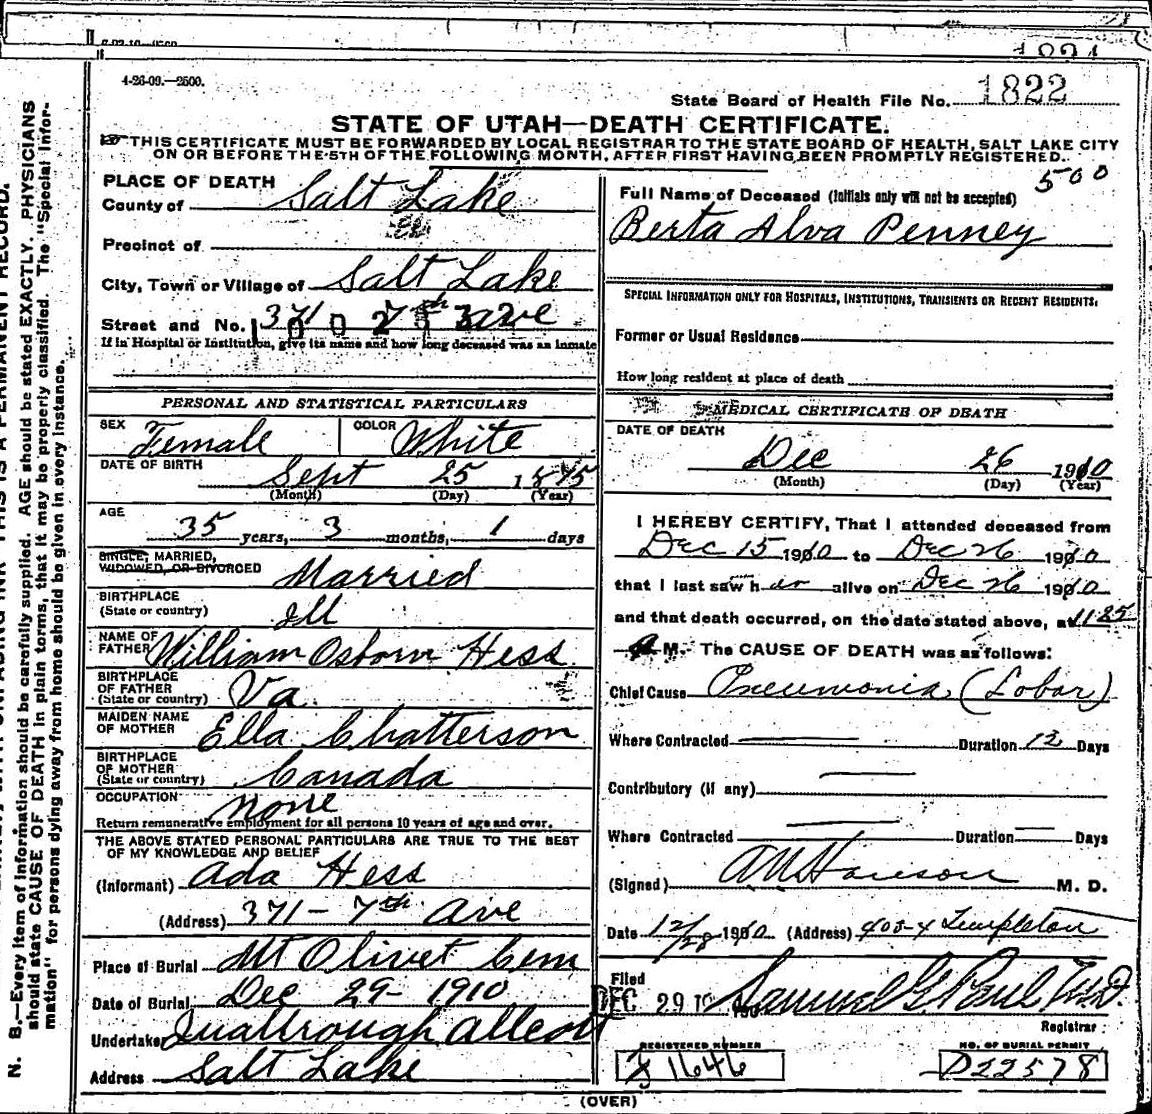 1821
4-26-09.—2500.
State Board of Health File No. 1822
STATE OF UTAH—DEATH CERTIFICATE.
THIS CERTIFICATE MUST BE FORWARDED BY LOCAL REGISTRAR TO THE STATE BOARD OF HEALTH, SALT LAKE CITY
ON OR BEFORE THE 5TH OF THE FOLLOWING MONTH, AFTER FIRST HAVING BEEN PROMPTLY REGISTERED.
500
PLACE OF DEATH
County of Salt Lake
Precinct of
City, Town or Village of Salt Lake
Street and No. 371 7th ave
If in Hospital or Institution, give its name and how long deceased was an inmate
PERSONAL AND STATISTICAL PARTICULARS
SEX Female COLOR White
DATE OF BIRTH Sept 25 1875
(Month) (Day) (Year)
AGE 35 years, 3 months, 1 days
SINGLE, MARRIED,
WIDOWED, OR DIVORCED Married
BIRTHPLACE
(State or country) Ill
NAME OF
FATHER William Osborn Hess
BIRTHPLACE
OF FATHER
(State or country) Va
MAIDEN NAME
OF MOTHER Ella Chatterson
BIRTHPLACE
OF MOTHER
(State or country) Canada
OCCUPATION none
Return remunerative employment for all persons 10 years of age and over.
THE ABOVE STATED PERSONAL PARTICULARS ARE TRUE TO THE BEST
OF MY KNOWLEDGE AND BELIEF
(Informant) Ada Hess
(Address) 371 - 7th Ave
Place of Burial Mt Olivet Cem
Date of Burial Dec 29- 1910
Undertaker
Address Salt Lake
Full Name of Deceased (Initials only will not be accepted)
Berta Alva Penney
SPECIAL INFORMATION ONLY FOR HOSPITALS, INSTITUTIONS, TRANSIENTS OR RECENT RESIDENTS.
Former or Usual Residence
How long resident at place of death
MEDICAL CERTIFICATE OF DEATH
DATE OF DEATH
Dec 26 1910
(Month) (Day) (Year)
I HEREBY CERTIFY, That I attended deceased from
Dec 15 1910 to Dec 26 1910
that I last saw her alive on Dec 26 1910
and that death occurred, on the date stated above, at 11 25
a M. The CAUSE OF DEATH was as follows:
Chief Cause Pneumonia (Lobar)
Where Contracted Duration 12 Days
Contributory (if any)
Where Contracted Duration Days
(Signed) M. D.
Date 12/28 1910 (Address) 405-4 Templeton
Filed
DEC 29 10 Samuel G. Paul M.D.
Registrar
REGISTERED NUMBER
1646
NO. OF BURIAL PERMIT
D22578
(OVER)
N. B.—Every item of information should be carefully supplied. AGE should be stated EXACTLY. PHYSICIANS
should state CAUSE OF DEATH in plain terms, that it may be properly classified. The "Special Infor-
mation" for persons dying away from home should be given in every instance.